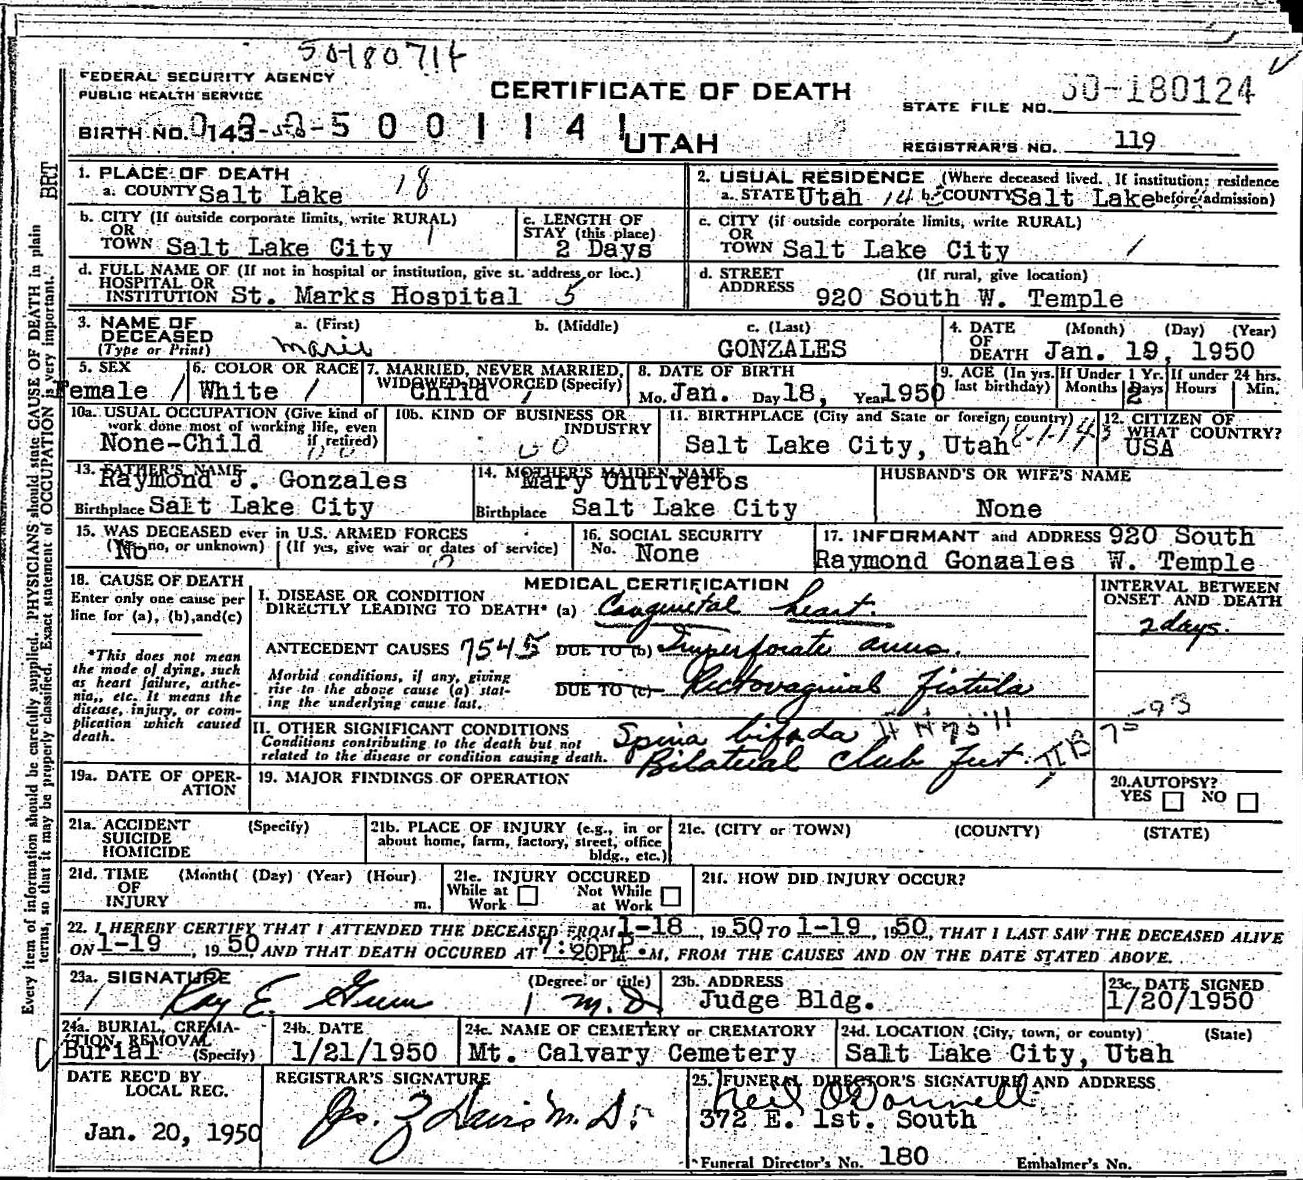 50180714
FEDERAL SECURITY AGENCY
PUBLIC HEALTH SERVICE
CERTIFICATE OF DEATH
STATE FILE NO. 50-180124
BIRTH NO. 143-
UTAH
REGISTRAR'S NO. 119
Every item of information should be carefully supplied. PHYSICIANS should state CAUSE OF DEATH in plain
terms, so that it may be properly classified. Exact statement of OCCUPATION is very important.
BRT
1. PLACE OF DEATH
a. COUNTY Salt Lake 18
2. USUAL RESIDENCE (Where deceased lived. If institution: residence
a. STATE Utah 14 b. COUNTY Salt Lake before admission)
b. CITY (If outside corporate limits, write RURAL)
OR
TOWN Salt Lake City 1
c. LENGTH OF
STAY (this place)
2 Days
c. CITY (if outside corporate limits, write RURAL)
OR
TOWN Salt Lake City /
d. FULL NAME OF (If not in hospital or institution, give st. address or loc.)
HOSPITAL OR
INSTITUTION St. Marks Hospital 5
d. STREET (If rural, give location)
ADDRESS
920 South W. Temple
3. NAME OF a. (First) b. (Middle) c. (Last)
DECEASED
(Type or Print) Marie GONZALES
4. DATE (Month) (Day) (Year)
OF
DEATH Jan. 19, 1950
5. SEX
Female /
6. COLOR OR RACE
White /
7. MARRIED, NEVER MARRIED,
WIDOWED, DIVORCED (Specify)
Child /
8. DATE OF BIRTH
Mo. Jan. Day 18, Year 1950
9. AGE (In yrs. last birthday) If Under 1 Yr. Months Days 2 If under 24 hrs. Hours Min.
10a. USUAL OCCUPATION (Give kind of
work done most of working life, even
if retired)
None-Child
10b. KIND OF BUSINESS OR
INDUSTRY
11. BIRTHPLACE (City and State or foreign country)
Salt Lake City, Utah
12. CITIZEN OF
WHAT COUNTRY?
USA
13. FATHER'S NAME
Raymond J. Gonzales
Birthplace Salt Lake City
14. MOTHER'S MAIDEN NAME
Mary Untiveros
Birthplace Salt Lake City
HUSBAND'S OR WIFE'S NAME
None
15. WAS DECEASED ever in U.S. ARMED FORCES
(Yes, no, or unknown) (If yes, give war or dates of service)
No
16. SOCIAL SECURITY
No. None
17. INFORMANT and ADDRESS 920 South
Raymond Gonzales W. Temple
18. CAUSE OF DEATH
Enter only one cause per
line for (a), (b), and (c)
*This does not mean
the mode of dying, such
as heart failure, asthe-
nia, etc. It means the
disease, injury, or com-
plication which caused
death.
MEDICAL CERTIFICATION
I. DISEASE OR CONDITION
DIRECTLY LEADING TO DEATH* (a) Congenital heart.
ANTECEDENT CAUSES 7545 DUE TO (b) Imperforate anus.
Morbid conditions, if any, giving
rise to the above cause (a) stat-
ing the underlying cause last.
DUE TO (c) Rectovaginal fistula
II. OTHER SIGNIFICANT CONDITIONS
Conditions contributing to the death but not
related to the disease or condition causing death.
Spina bifida
Bilateral Club Feet.
INTERVAL BETWEEN
ONSET AND DEATH
2 days.
19a. DATE OF OPER-
ATION
19. MAJOR FINDINGS OF OPERATION
20. AUTOPSY?
YES NO
21a. ACCIDENT (Specify)
SUICIDE
HOMICIDE
21b. PLACE OF INJURY (e.g., in or
about home, farm, factory, street, office
bldg., etc.)
21c. (CITY or TOWN) (COUNTY) (STATE)
21d. TIME (Month( (Day) (Year) (Hour)
OF
INJURY m.
21e. INJURY OCCURED
While at Work Not While at Work
21f. HOW DID INJURY OCCUR?
22. I HEREBY CERTIFY THAT I ATTENDED THE DECEASED FROM 1-18, 1950 TO 1-19, 1950, THAT I LAST SAW THE DECEASED ALIVE
ON 1-19, 1950 AND THAT DEATH OCCURED AT 7:20PM M, FROM THE CAUSES AND ON THE DATE STATED ABOVE.
23a. SIGNATURE (Degree or title)
Ray E. M.D.
23b. ADDRESS
Judge Bldg.
23c. DATE SIGNED
1/20/1950
24a. BURIAL, CREMA-
TION, REMOVAL
Burial (Specify)
24b. DATE
1/21/1950
24c. NAME OF CEMETERY or CREMATORY
Mt. Calvary Cemetery
24d. LOCATION (City, town, or county) (State)
Salt Lake City, Utah
DATE REC'D BY
LOCAL REG.
Jan. 20, 1950
REGISTRAR'S SIGNATURE
Davis M.D.
25. FUNERAL DIRECTOR'S SIGNATURE AND ADDRESS
Neil O'Donnell
372 E. 1st. South
Funeral Director's No. 180 Embalmer's No.